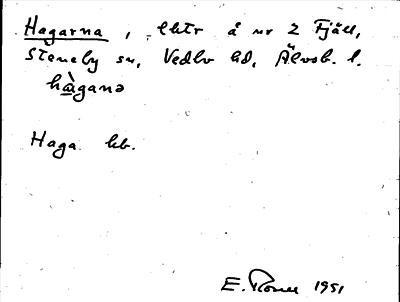 Hagarna, lktr å nr 2 Fjäll,
Steneby sn, Vedbo hd, Älvsb. l.
hàganə
Haga hb.
E. 1951